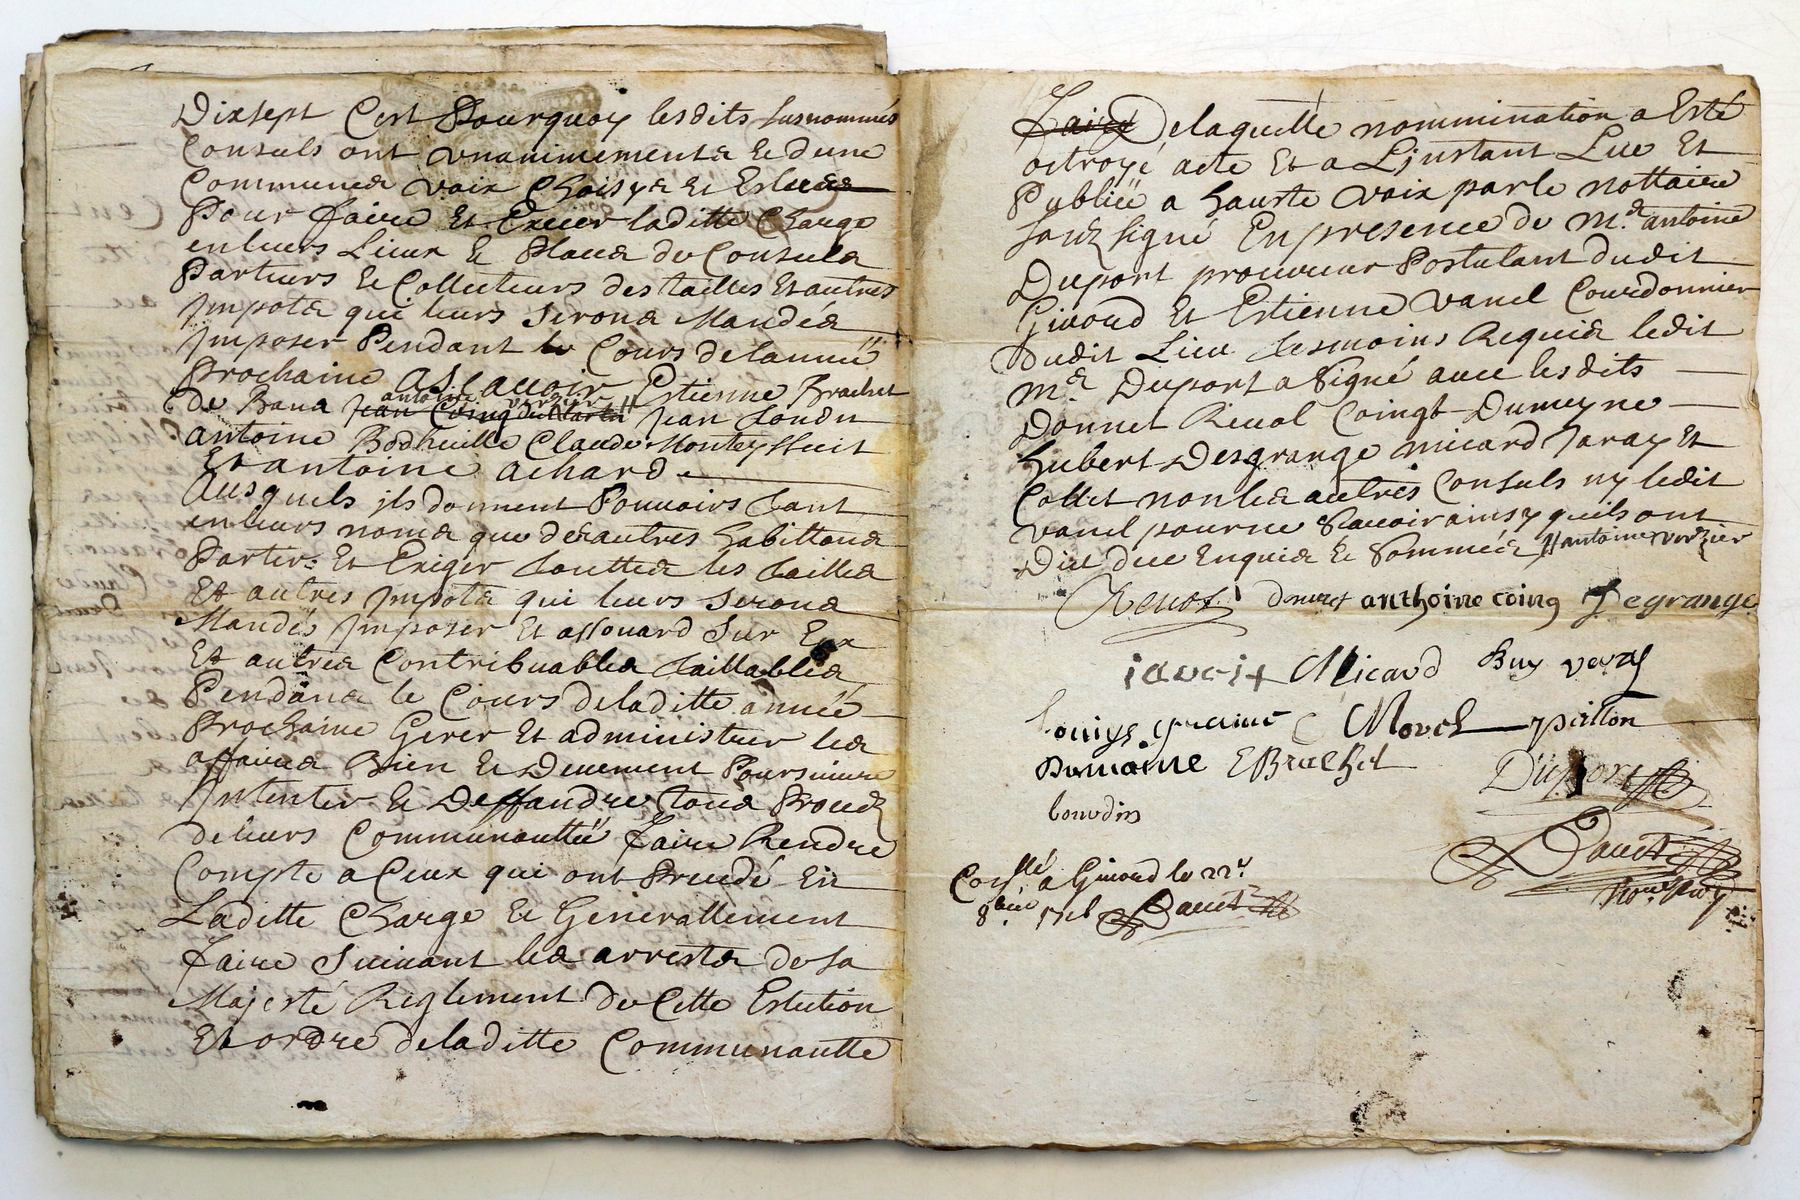 Dixsept Cest Pourquoy lesdits susnommés
Consuls ont vnanimements Et dune
Communes voix Choisys Et Esleus
Pour faire Et Exercer laditte Charge
enleurs Lieux Et Places de Consuls
Parteurs Et Collecteurs des tailles Et autres
Imposts qui leurs Seronts Mandés
Imposer Pendant le Cours delannéé
Prochaine ASsauoir Estienne Brachet
antoine verzier //
de Bans Jean Coing Jean
antoine Claude
Et antoine achard
Ausquels jls donnent Pouuoirs tant
enleurs noms que des autres habittans
Partir Et Exiger touttes les tailles
Et autres Imposts qui leurs Seronts
Mandés Imposer Et assouard Sur Eux
Et autres Contribuables taillables
Pendans le Cours deladitte année
Prochaine Gerer Et administrer les
affaires Bien Et Deuement Poursuiure
Intenter Et Deffandre tous Proces
deleurs Communauttéé faire Rendre
Compte a Ceux qui ont Precedé En
Laditte Charge Et Generallement
faire Suiuant les arrests de sa
Majesté Reglement de Cette Eslection
Et ordre deladitte Communautte
faire Delaquelle nommination a Esté
octroyé acte Et a Ljnstant Lue Et
Publiéé a haute voix par le nottaire
souz signé En presence de Me. antoine
Duport procureur Postulant dudit
Giuord Et Estienne vanel Courdonnier
dudit Lieu tesmoins Requis ledit
Me Duport a Signé auec lesdits
Donnet Reuol Coingt Dumeyne
hubert Desgrange micard Jaray Et
Collet non les autres Consuls ny ledit
vanel pour ne Scauoir ainsy quils ont
Dit dee Enquis Et Sommés // antoine verzier
Reuol donnet anthoine coing Degrange
Micard Buy
Louiys C Morel
Dumaine EBrachet Duport
bourdin
Dauet
Noe. Roy
Conllé a Giuord le 22e
8bre 1716 Dauet